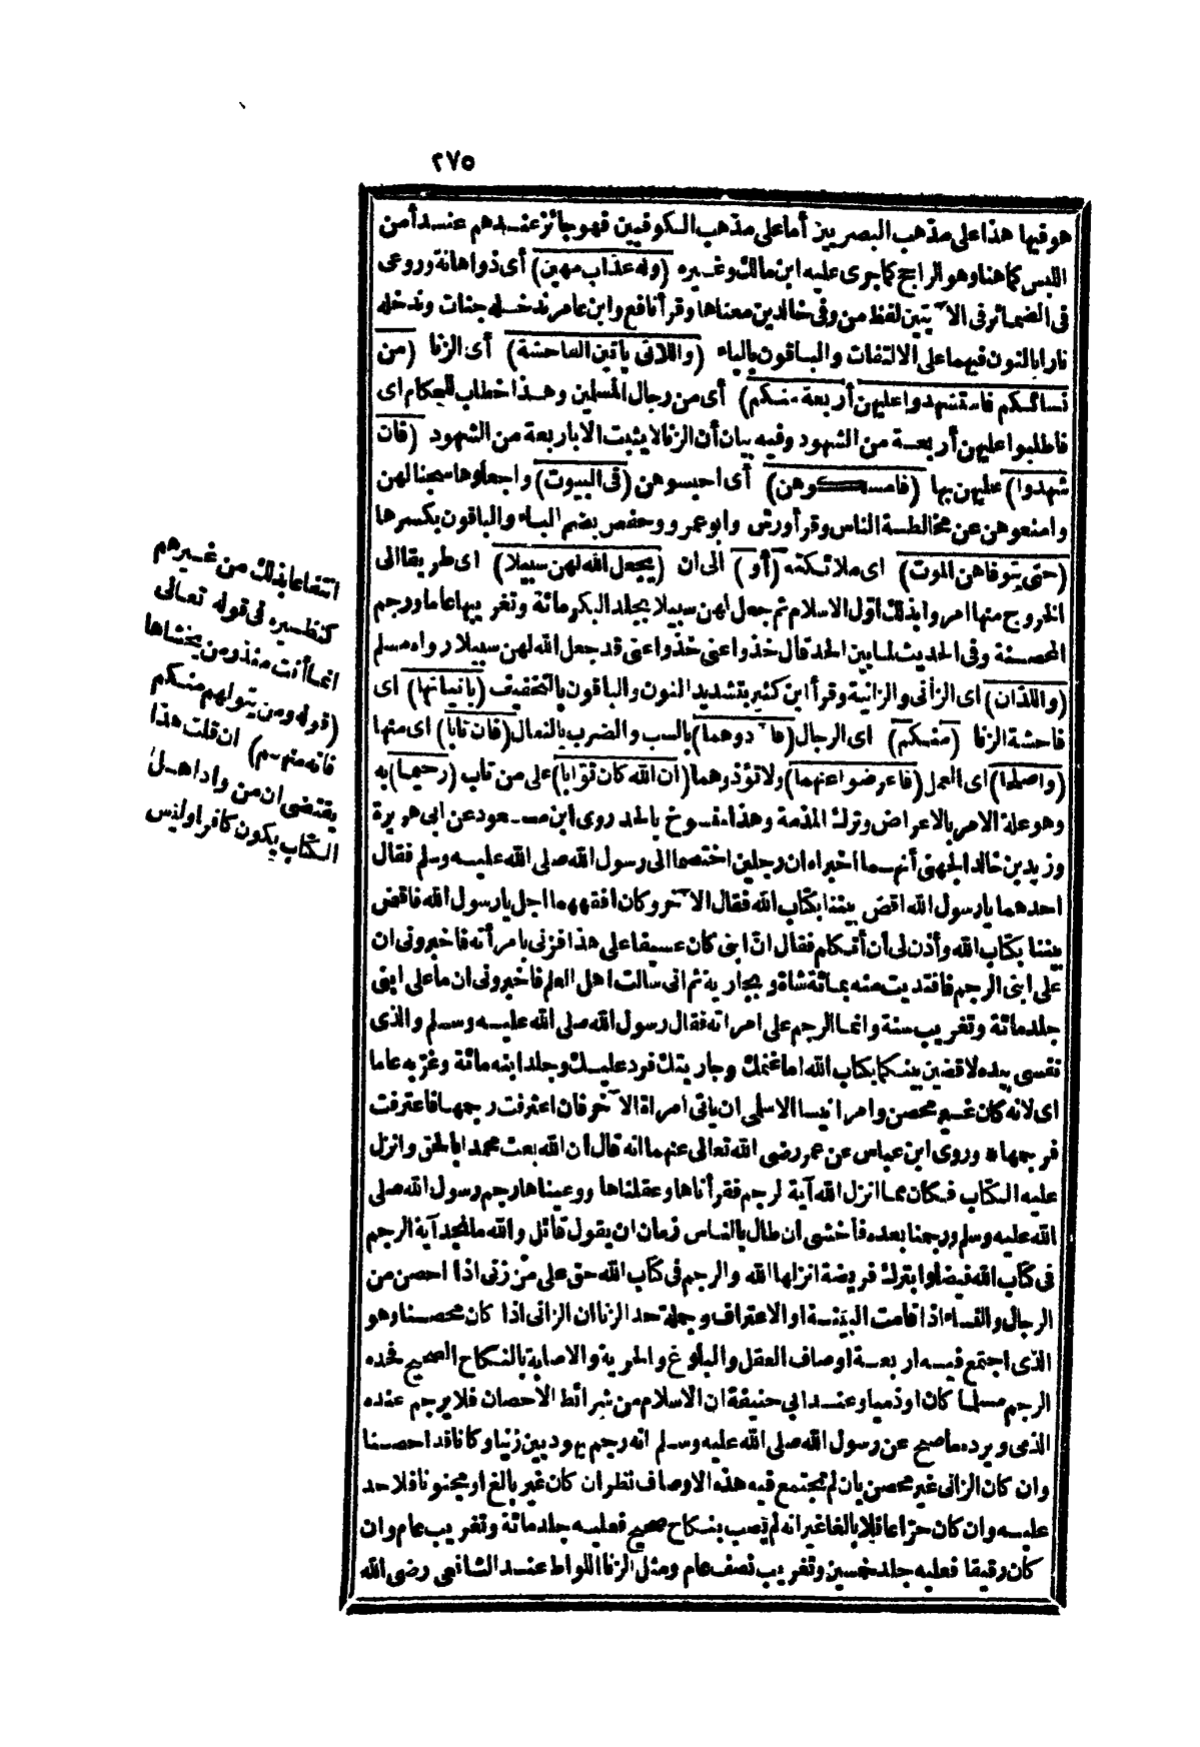 ٢٧٥
هو فيها هذا على مذهب البصريين أما على مذهب الكوفيين فهو جائز عندهم عند أمن
اللبس كما هنا وهو الراجح كما جرى عليه ابن مالك وغيره (وله عذاب مهين) أى ذو اهانة وروعى
فى الضمائر فى الآيتين لفظ من وفى خالدين معناها وقرأ نافع وابن عامر ندخله جنات وندخله
نارا بالنون فيهما على الالتفات والباقون بالياء (واللاتى يأتين الفاحشة) أى الزنا (من
نسائكم فاستشهدوا عليهن أربعة منكم) أى من رجال المسلمين وهذا خطاب للحكام اى
فاطلبوا عليهن أربعة من الشهود وفيه بيان أن الزنا لا يثبت الا باربعة من الشهود (فان
شهدوا) عليهن بها (فامسكوهن) أى احبسوهن (فى البيوت) واجعلوها سجنا لهن
وامنعوهن عن مخالطة الناس وقرأ ورش وابو عمرو وحفص بضم الباء والباقون بكسرها
(حتى يتوفاهن الموت) اى ملائكته (أو) الى ان (يجعل الله لهن سبيلا) اى طريقا الى
الخروج منها امروا بذلك اوّل الاسلام ثم جعل لهن سبيلا بجلد البكر مائة وتغريبها عاما ورجم
المحصنة وفى الحديث لما بين الحد قال خذوا عنى خذوا عنى قد جعل الله لهن سبيلا رواه مسلم
(واللذان) اى الزانى والزانية وقرأ ابن كثير بتشديد النون والباقون بالتخفيف (يأتيانها) اى
فاحشة الزنا (منكم) اى الرجال (فآذوهما) بالسب والضرب بالنعال (فان تابا) اى منها
(واصلحا) اى العمل (فاعرضوا عنهما) ولا تؤذوهما (ان الله كان توّابا) على من تاب (رحيما) به
وهو علة الامر بالاعراض وترك المذمة وهذا منسوخ بالحد روى ابن مسعود عن ابى هريرة
وزيد بن خالد الجهنى أنهما اخبراه ان رجلين اختصما الى رسول الله صلى الله عليه وسلم فقال
احدهما يا رسول الله اقض بيننا بكتاب الله فقال الآخر وكان افقههما اجل يا رسول الله فاقض
بيننا بكتاب الله وأذن لى أن أتكلم فقال انّ ابنى كان عسيفا على هذا فزنى بامرأته فاخبرونى ان
على ابنى الرجم فافتديت منه بمائة شاة وبجارية ثم انى سألت اهل العلم فأخبرونى ان ما على ابنى
جلد مائة وتغريب سنة وانما الرجم على امراته فقال رسول الله صلى الله عليه وسلم والذى
نفسى بيده لاقضين بينكما بكتاب الله اما غنمك وجاريتك فرد عليك وجلد ابنه مائة وغرّبه عاما
اى لانه كان غير محصن وامر انيسا الاسلمى ان ياتى امراة الآخر فان اعترفت رجمها فاعترفت
فرجمها * وروى ابن عباس عن عمر رضى الله تعالى عنهما انه قال ان الله بعث محمدا بالحق وانزل
عليه الكتاب فكان مما انزل الله آية الرجم فقرأناها وعقلناها ووعيناها رجم رسول الله صلى
الله عليه وسلم ورجمنا بعده فأخشى ان طال بالناس زمان ان يقول قائل والله ما نجد آية الرجم
فى كتاب الله فيضلوا بترك فريضة انزلها الله والرجم فى كتاب الله حق على من زنى اذا احصن من
الرجال والنساء اذا قامت البيّنة او الاعتراف وجملة حد الزنا ان الزانى اذا كان محصنا وهو
الذى اجتمع فيه اربعة اوصاف العقل والبلوغ والحرية والاصابة بالنكاح الصحيح فحده
الرجم مسلما كان او ذميا وعند ابى حنيفة ان الاسلام من شرائط الاحصان فلا يرجم عنده
الذمى ويرده ما صح عن رسول الله صلى الله عليه وسلم انه رجم يهوديين زنيا وكانا قد احصنا
وان كان الزانى غير محصن بان لم تجتمع فيه هذه الاوصاف نظر ان كان غير بالغ او مجنونا فلا حد
عليه وان كان حرّا عاقلا بالغا غير انه لم يصب بنكاح صحيح فعليه جلد مائة وتغريب عام وان
كان رقيقا فعليه جلد خمسين وتغريب نصف عام ومثل الزنا اللواط عند الشافعى رضى الله
انتفاعا بذلك من غيرهم
كنظيره فى قوله تعالى
انما أنت منذر من يخشاها
(قوله ومن يتولهم منكم
فانه منهم) ان قلت هذا
يقتضى ان من واد اهل
الكتاب يكون كافرا وليس